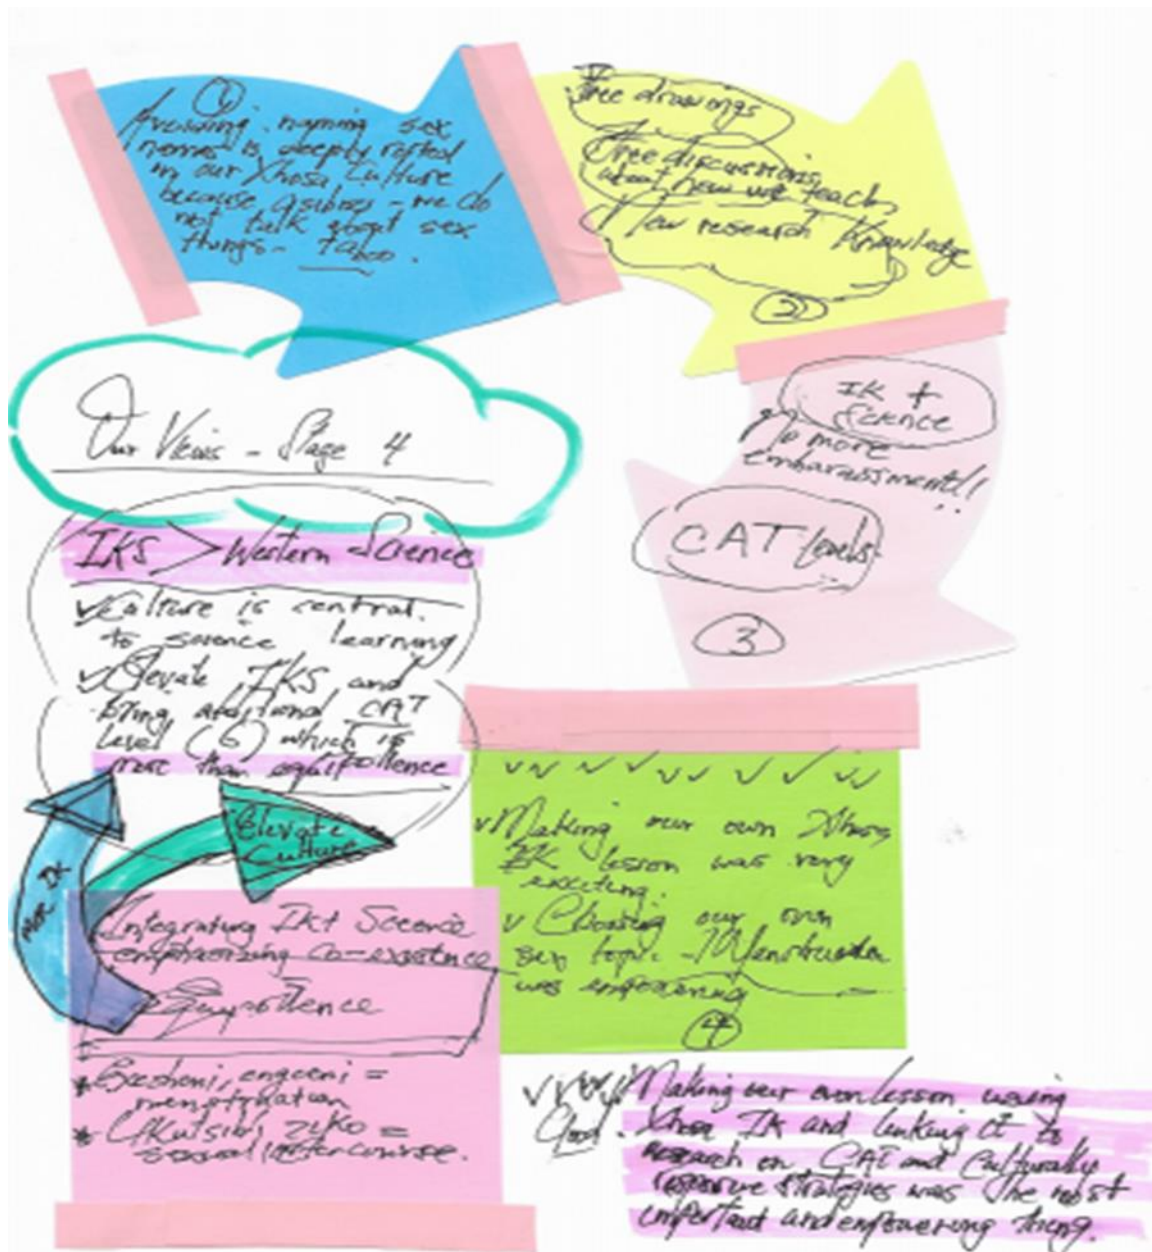 1
Avoiding naming sex
names is deeply rooted
in our Xhosa Culture
because - we do
not talk about sex
things - taboo.
Free drawings
Free discussions
about how we teach
New research Knowledge
2
IK +
Science
No more
embarassment!!
CAT levels
3
Our Views - Stage 4
IKS > Western Science
Culture is central
to science learning
Elevate IKS and
bring additional CAT
level (6) which is
more than equipollence
Elevate
Culture
More IK
Integrating IK+ Science
emphasizing co-existence
Equipollence
menstruation
sexual intercourse.
Making our own Xhosa
IK lesson was very
exciting.
Choosing our own
sex topic - Menstruation
was empowering
4
Making our own lesson using
Xhosa IK and linking it to
research on CAT and Culturally
strategies was the most
important and empowering thing.